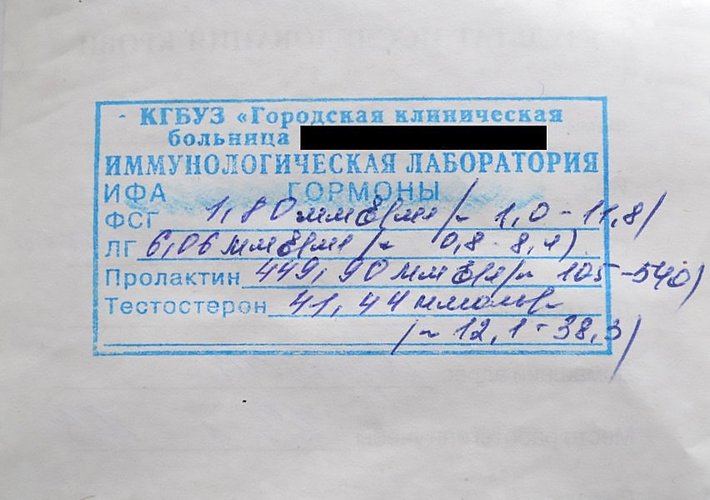 КГБУЗ «Городская клиническая
больница
ИММУНОЛОГИЧЕСКАЯ ЛАБОРАТОРИЯ
ИФА ГОРМОНЫ
ФСГ 1,80 ммЕ/мл /~ 1,0 - 11,8/
ЛГ 6,06 ммЕ/мл /~ 0,8 - 8,4)
Пролактин 449,90 ммЕ/л /~ 105-540)
Тестостерон 41,44 нмоль/л
/~ 12,1-38,3/